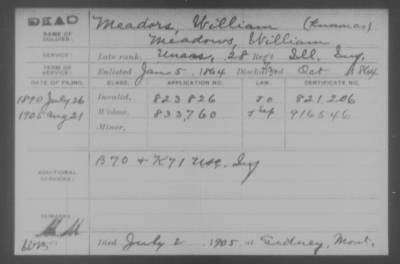 DEAD
NAME OF SOLDIER:
Meadors, William
Meadows, William
SERVICE:
Late rank, 28 Reg't Ill. Inf.
TERM OF SERVICE:
Enlisted Jan 5, 1864 Discharged Oct 1864
DATE OF FILING. CLASS. APPLICATION NO. LAW. CERTIFICATE NO.
1890 July 26 Invalid, 823,826 821,206
1905 Aug 21 Widow, 833,760 916546
Minor,
ADDITIONAL SERVICES:
B 70 & K 71 Inf
REMARKS:
Died July 2 1905, at Sidney, Mont.